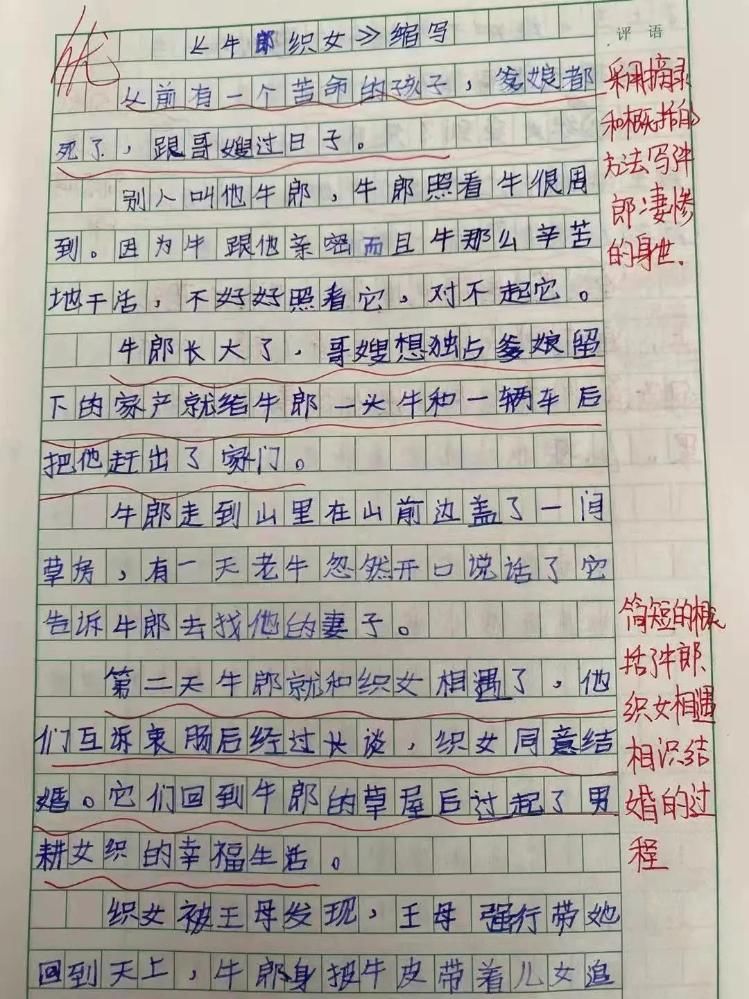 优
《牛郎织女》缩写
评语
从前有一个苦命的孩子，爹娘都
死了，跟哥嫂过日子。
别人叫他牛郎，牛郎照看牛很周
到。因为牛跟他亲密而且牛那么辛苦
地干活，不好好照看它，对不起它。
牛郎长大了，哥嫂想独占爹娘留
下的家产就给牛郎一头牛和一辆车后
把他赶出了家门。
牛郎走到山里在山前边盖了一间
草房，有一天老牛忽然开口说话了它
告诉牛郎去找他的妻子。
第二天牛郎就和织女相遇了，他
们互诉衷肠后经过长谈，织女同意结
婚。它们回到牛郎的草屋后过起了男
耕女织的幸福生活。
织女被王母发现，王母强行带她
回到天上，牛郎身披牛皮带着儿女追
采用摘录
和概括的
方法写牛
郎凄惨
的身世.
简短的概
括了牛郎
织女相遇
相识结
婚的过
程